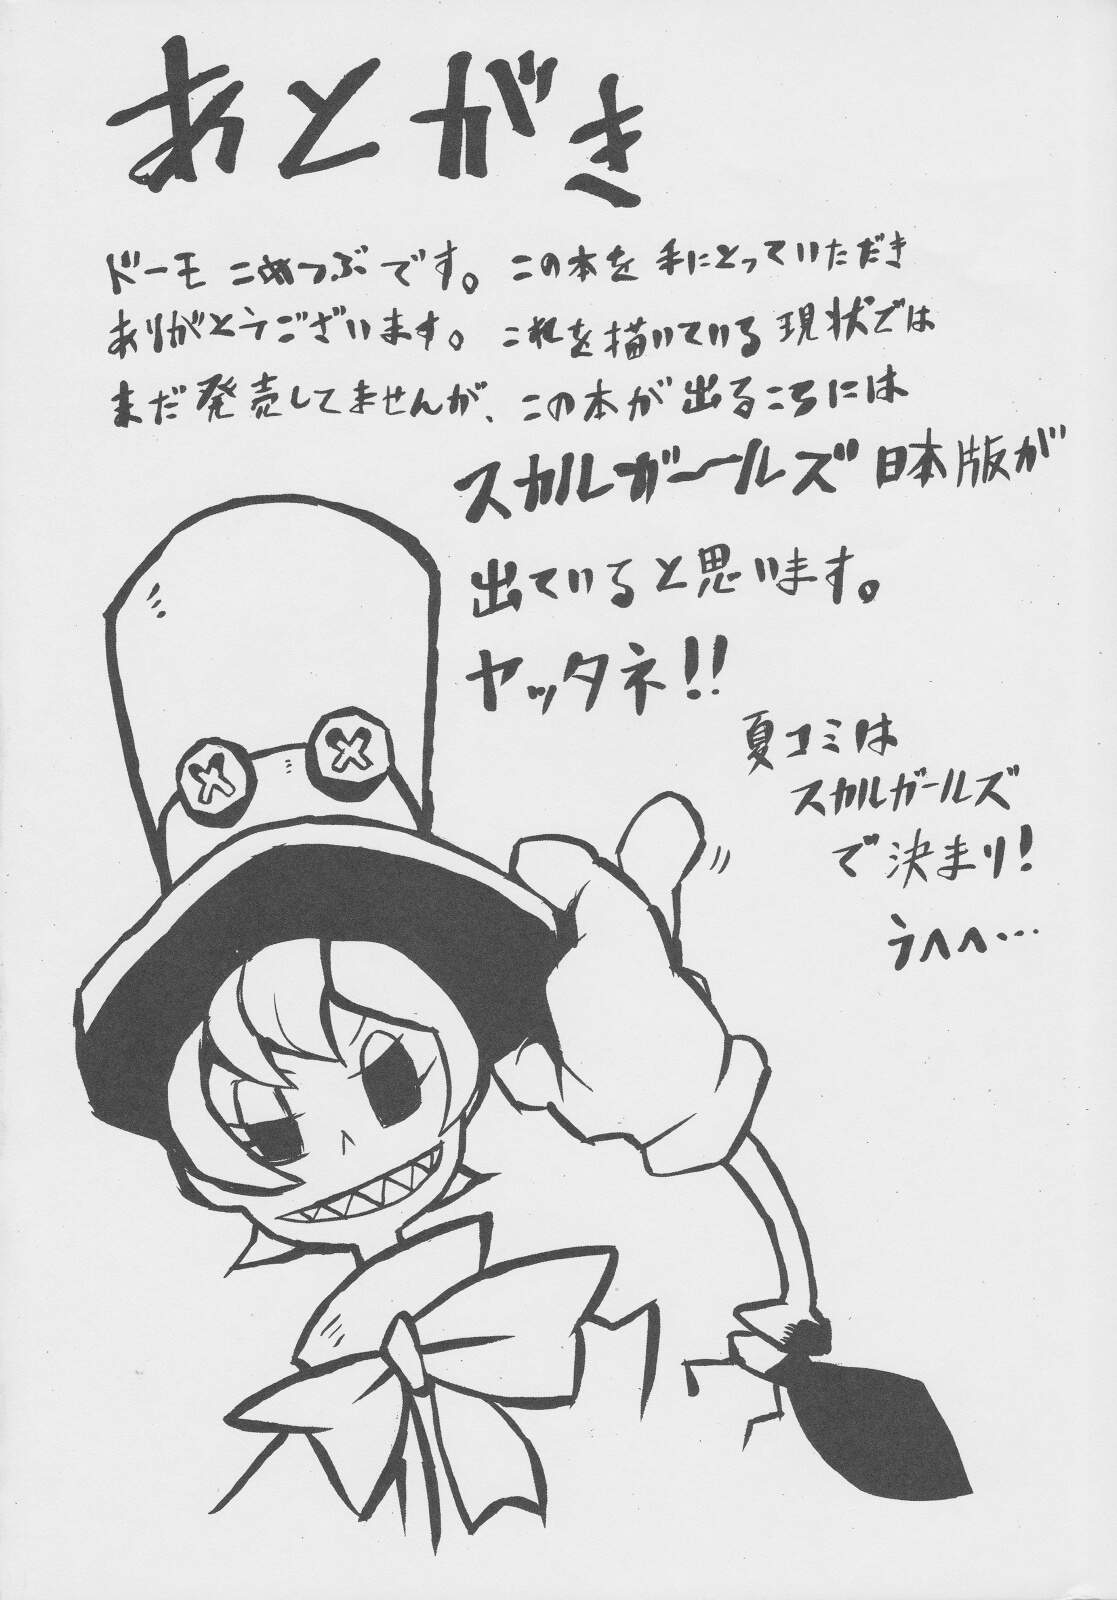 あとがき
ドーモ こめつぶです。この本を手にとっていただき
ありがとうございます。これを描いている現状では
まだ発売してませんが、この本が出るころには
スカルガールズ日本版が
出ていると思います。
ヤッタネ!!
夏コミは
スカルガールズ
で決まり!
うへへ…